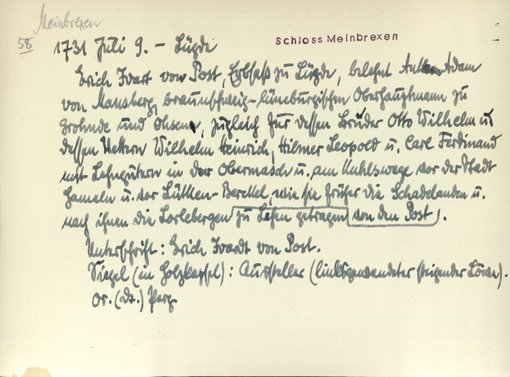 Meinbrexen
58
1731 Juli 9. – Lügde
Schloss Meinbrexen
Erich Ivart von Post, Erbsaß zu Lügde, belehnt Anton Adam
von Mansberg, braunschweig-lüneburgischen Oberhauptmann zu
Grohnde und Ohsen, zugleich für dessen Brüder Otto Wilhelm u.
dessen Vettern Wilhelm Heinrich, Hilmer Leopold u. Carl Ferdinand
mit Lehngütern in der Obermasch u. am Kuhlswege vor der Stadt
Hameln u. vor Lüttken-Berckel, wie sie früher die Schadelanden u.
nach ihnen die Lorlebergen zu Lehen getragen von den Post.
Unterschrift: Erich Ivardt von Post.
Siegel (in Holzkapsel): Aussteller (linksgewendeter steigender Löwe).
Or. (dt.) Perg.